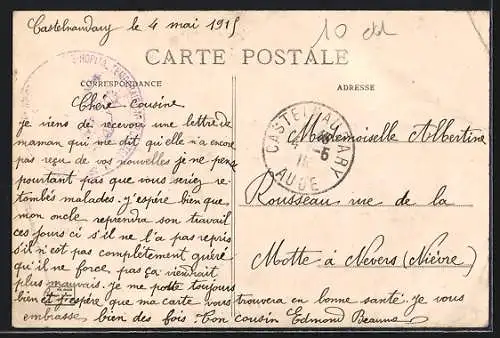 Castelnaudary le 4 mai 1915
10 ctd
CARTE POSTALE
CORRESPONDANCE
ADRESSE
HOPITAL
CASTELNAUDARY
AUDE
Chère cousine
je viens de recevoir une lettre de
maman qui me dit qu'elle n'a encore
pas reçu de vos nouvelles je ne pense
pourtant pas que vous seriez re-
tombés malades. j'espère bien que
mon oncle reprendra son travail
ces jours ci s'il ne l'a pas repris
s'il n'est pas complètement guéri
qu'il ne force pas ça viendrait
plus mauvais. je me porte toujours
bien et j'espère que ma carte vous trouvera en bonne santé. je vous
embrasse bien des fois. Ton cousin Edmond
Mademoiselle Albertine
Rousseau rue de la
Motte à Nevers (Nièvre)